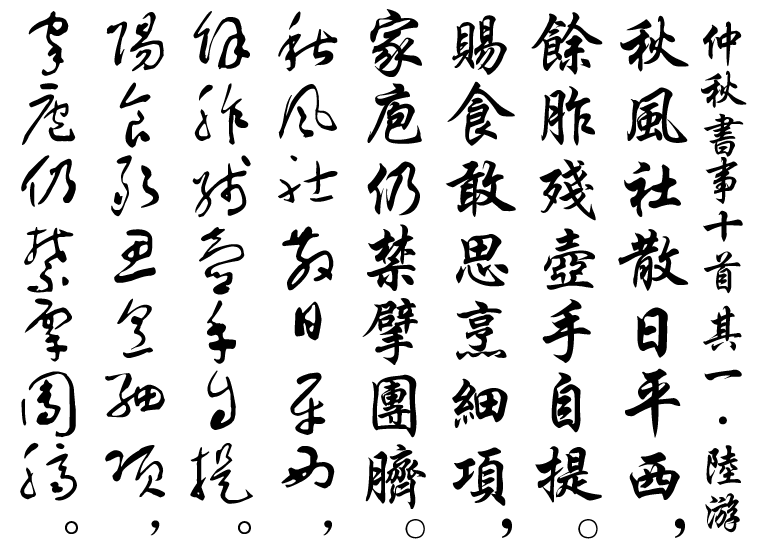 仲秋書事十首其一·陸游
秋風社散日平西，
餘胙殘壺手自提。
賜食敢思烹細項，
家庖仍禁擘團臍。
秋風社散日平西，
餘胙殘壺手自提。
賜食敢思烹細項，
家庖仍禁擘團臍。